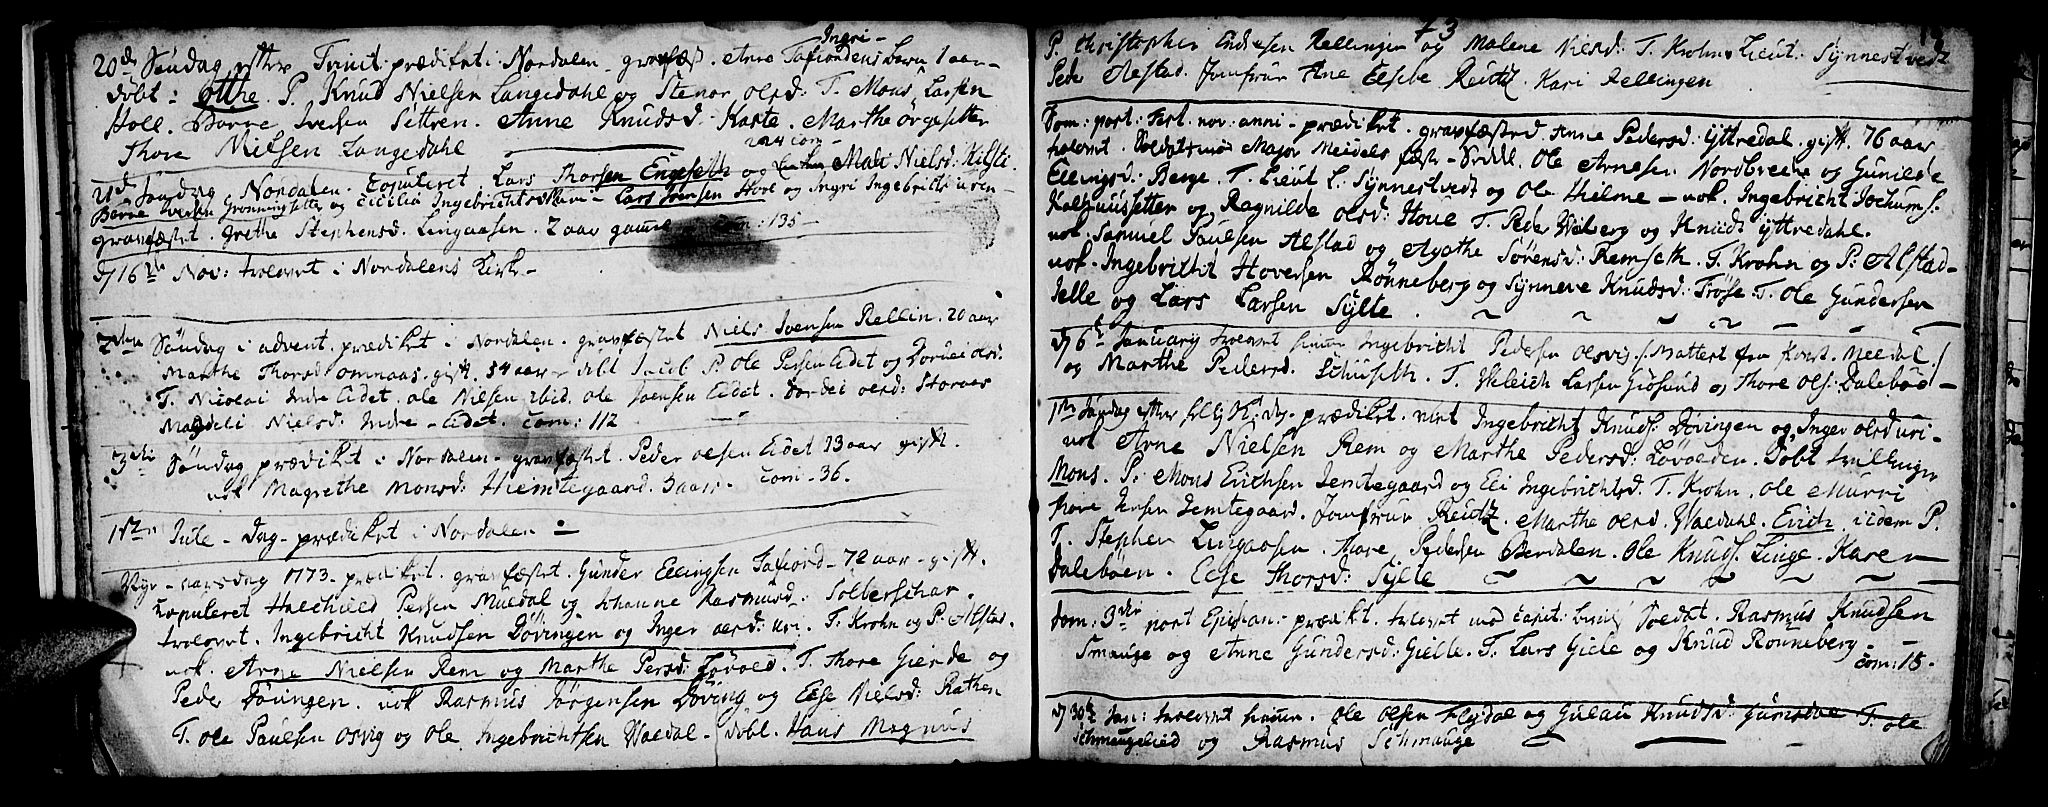 Ingri
20de Søndag efter Trinit: prædiket i Nordalen - gravfæst. Anne Tafiordens barn 1 aar -
døbt: Otthe. P. Knud Nielsen Langedahl og Stenor olsd: T. Mons Larssen
Holl. Barne Iversen Settren. Anne Knudsd: Karte. Marthe ørgesetter
Thore Nielsen Langedahl
21de Søndag Nordalen. Copuleret Lars Thorsen Engeseth og Mari Nielsd: Kilsti
Barne Iversen Grønningsetter og Cicilia Ingebrichtsd - Lars Iversen Hove og Ingri Ingebrichts uren -
gravfæstet. Grethe Stephensd. Lingaasen. 2 aar gammel com: 135 -
D/ 16de Nov: trolovet i Nordalens Kirke -
2den Søndag i advent. prædiket i Nordalen. gravfæstet Niels Ivensen Rellin. 20 aar
Marthe Thorsd omnaas. gift. 54 aar - døbt Jacob P. Ole Persen Eidet og Dordei olsd:
T. Nicolai Indre Eidet. ole Nielsen ibid. ole Joensen Eidet. Dordei olsd: Storaas
Magdeli Nielsd: Indre - Eidet. com: 112
3die Søndag prædiket i Nordalen - gravfæstet. Peder olsen Eidet 73 aar gift.
nok Magrethe Monsd: Hiemtegaard. 3 aar. com - 36.
1ste Jule - Dag - prædiket i Nordalen
Nyt - aarsdag 1773. prædiket. gravfæstet. Gunder Ellingsen Tafiord - 72 aar - gift.
Copuleret Halchild Persen Muldal og Johanne Rasmusd: Solberschar.
trolovet. Ingebricht Knudsen Døvingen og Inger olsd: uri. T. Krohn og P. Alstad.
nok. Arne Nielsen Rem og Marthe Persd: Løvold. T. Thore Gierde og
Peder Døvingen. nok Rasmus Jørgensen Døving og Else Nielsd: Rathen
T. ole Paulsen osvig og ole Ingebrichtsen Valdal - døbt. Hans Magnus
73
P. Christopher Endresen Rellingen og Malene Nielsd: T. Krohn. Lieut: Synnestvedt
Peder Alstad. Jomfrue Ane Elsebe Reutz. Kari Rellingen
Dom: post: Fest. nov: anni - prædiket. gravfæsted Anne Pedersd: Yttredal. gift. 76 aar
trolovet. Soldat Major Meidels Sedel. Ole Arnesen Nordbrede og Gunilde
Ellingsd: Berge. T. Lieut L: Synnestvedt og Ole Hielme - nok. Ingebricht Jochums:
Kalhussetter og Ragnilde olsd: Hove T. Peder Viberg og Knud Yttredahl.
nok. Samuel Paulsen Alstad og Agathe Sørensd: Remseth. T. Krohn og P: Alstad -
nok. Ingebricht Hoversen Rønneberg og Synneve Knudsd: Trøse. T. Ole Gundersen
Jelle og Lars Larsen Sylte.
D/ 6te January trolovet Ingebricht Pedersen olsvig. / Mattert fra Meldal /
og Marthe Pedersd: Schuseth. T. Velech Larsen Giøsund og Thore Ols: Dalebøe -
1ste Søndag efter H: 3 K: dag - prædiket. viet Ingebricht Knuds: Døvingen og Inger olsd uri -
nok Arne Nielsen Rem og Marthe Pedersd: Løvolden. Døbt tvillinger
Mons. P: Mons Erichsen Jemtegaard og Eli Ingebrichtsd. T. Krohn. ole Murri
Thore Jensen Jemtegaard. Jomfrue Reutz. Marthe olsd. Valdahl. Erich. iidem P.
T. Stephen Lingaasen. Thore Pedersen Berdalen. Ole Knuds. Linge. Karen
Dalebøen. Else Thorsd: Sylte
Dom: 3die post Epiphan: prædiket. trolovet med Capit: Soldat. Rasmus Knudsen
Smauge og Anne Gundersd: Gielle. T. Lars Giele og Knud Rønneberg - com: 18.
D/ 30te Jan: trolovet Ole Olsen Flydal og Gulau Knudsd: Gumsdal T. ole
Schmaugelied og Rasmus Schmauge